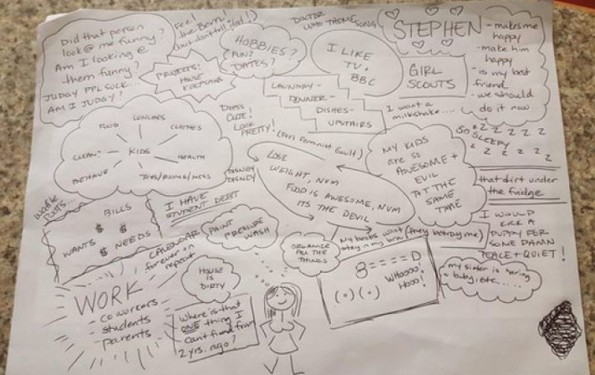 Did that person
look @ me funny?
Am I looking @
them funny?
JUDGY PPL SUCK...
AM I JUDGY?
Feel
the Bern!
(but don't tell Stef!)
PROJECTS!
HOUSE
KEEPING
HOBBIES?
FUN?
DATES?
DOCTOR
WHO THEME SONG
I LIKE
TV!
BBC
STEPHEN
- makes me
happy
- make him
happy
- is my best
friend
- we should
do it now
GIRL
SCOUTS
LAUNDRY-
DINNER-
DISHES-
UPSTAIRS
I want a
milkshake....
DRESS
CUTE!
LOOK
PRETTY!
(Feminist Guilt)
LUNCHES
CLOTHES
HEALTH
KIDS
CLEAN?
BEHAVE
LOSE
WEIGHT, NUM
FOOD IS AWESOME, NUM
ITS THE DEVIL
MY KIDS
are so
AWESOME +
EVIL
AT THE
SAME
TIME
SO SLEEPY
z z z z z
z z z z z
that dirt under
the fridge
I WOULD
LIKE A
PUPPY FOR
SOME DAMN
PEACE + QUIET!
BILLS
$ $
WANTS $ NEEDS
I HAVE
STUDENT DEBT
DISNEY
DISNEY
PAINT
PRESSURE
WASH
CALENDAR
forever on
repeat
ORGANIZE
ALL THE
THINGS
My boobs
(they betray me)
8====D
WHOOOO!
HOOO!
(.)(.)
my sister is having
a baby etc....
WORK
coworkers
students
parents
HOUSE
IS
DIRTY!
Where is that
ONE thing I
cant find from
2 yrs. ago?